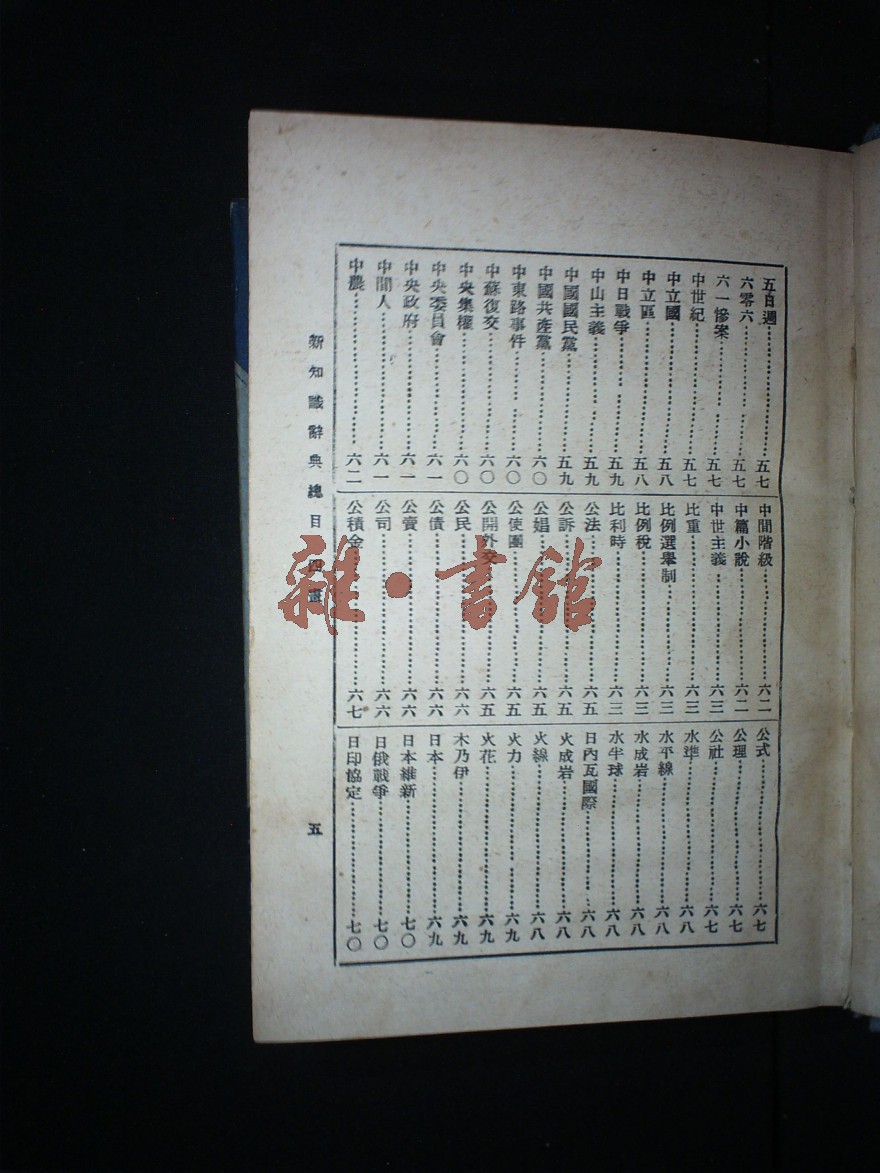 五百週五七
六零六五七
六一慘案五七
中世紀五七
中立國五八
中立區五八
中日戰爭五九
中山主義五九
中國國民黨五九
中國共產黨六〇
中東路事件六〇
中蘇復交六〇
中央集權六〇
中央委員會六一
中央政府六一
中間人六一
中農六二
中間階級六二
中篇小說六二
中世主義六三
比重六三
比例選舉制六三
比例稅六三
比利時六三
公法六五
公訴六五
公娼六五
公使團六五
公開外交六五
公民六六
公債六六
公賣六六
公司六六
公積金六七
公式六七
公理六七
公社六七
水準六八
水平線六八
水成岩六八
水半球六八
日內瓦國際六八
火成岩六八
火線六八
火力六九
火花六九
木乃伊六九
日本六九
日本維新七〇
日俄戰爭七〇
日印協定七〇
新知識辭典總目 四畫
五
雜·書館